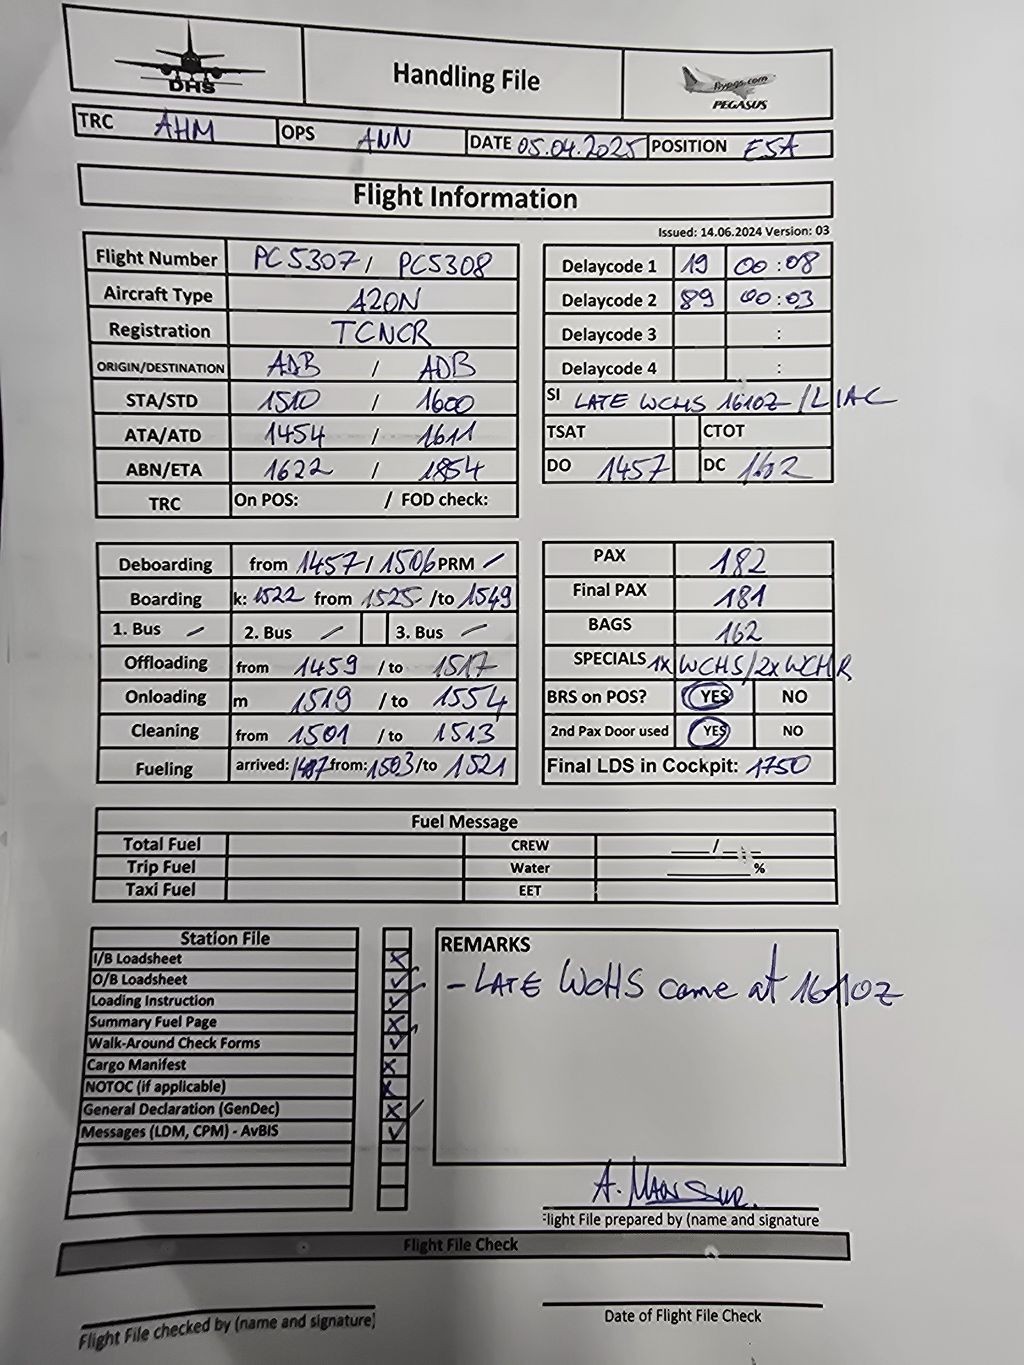 DHS
Handling File
flypgs.com
PEGASUS
TRC AHM OPS ANN DATE 05.04.2025 POSITION E5A
Flight Information
Issued: 14.06.2024 Version: 03
Flight Number PC5307 / PC5308
Aircraft Type A20N
Registration TCNCR
ORIGIN/DESTINATION ADB / ADB
STA/STD 1510 / 1600
ATA/ATD 1454 / 1611
ABN/ETA 1622 / 1854
TRC On POS: / FOD check:
Delaycode 1 19 00:08
Delaycode 2 89 00:03
Delaycode 3 :
Delaycode 4 :
SI LATE WCHS 1610Z / LIAC
TSAT CTOT
DO 1457 DC
Deboarding from 1457 / 1506 PRM /
Boarding k: 1522 from 1525 /to 1549
1. Bus / 2. Bus / 3. Bus /
Offloading from 1459 / to 1517
Onloading m 1519 / to 1554
Cleaning from 1501 / to 1513
Fueling arrived: from: 1503 /to 1521
PAX 182
Final PAX 181
BAGS 162
SPECIALS 1x WCHS/2x WCHR
BRS on POS? YES NO
2nd Pax Door used YES NO
Final LDS in Cockpit: 1750
Fuel Message
Total Fuel CREW ___/___
Trip Fuel Water ________ %
Taxi Fuel EET
Station File
I/B Loadsheet X
O/B Loadsheet ✓
Loading Instruction ✓
Summary Fuel Page X
Walk-Around Check Forms ✓
Cargo Manifest X
NOTOC (if applicable) X
General Declaration (GenDec) X
Messages (LDM, CPM) - AvBIS ✓
REMARKS
- LATE WCHS came at 1610Z
A. Mansur.
light File prepared by (name and signature
Flight File Check
Flight File checked by (name and signature)
Date of Flight File Check